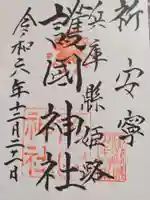 祈安寧
兵庫縣姫路
護國神社
令和六年十二月二十一日